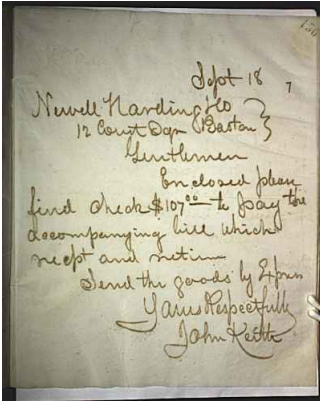 Sept 18 7
Newell Harding & Co
12 Court Sqr Boston
Gentlemen
Enclosed please
find check $107.00 to pay the
accompanying bill which
recpt and return
Send the goods by Express
Yours Respectfully
John Keith